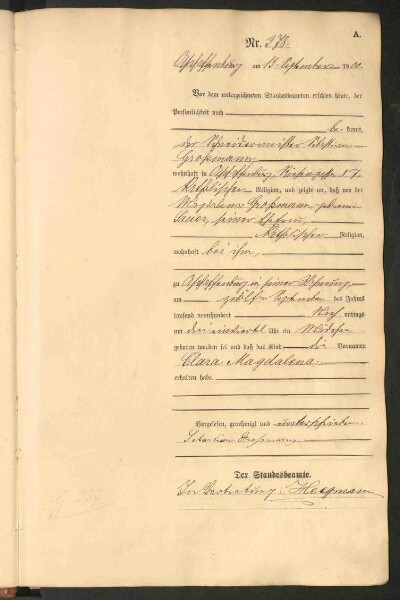 A.
Nr. 378.
Aschaffenburg am 13. September 1900.
Vor dem unterzeichneten Standesbeamten erschien heute, der
Persönlichkeit nach
be kannt,
der Schneidermeister Sebastian
Großmann
wohnhaft in Aschaffenburg,
katholischer Religion, und zeigte an, daß von der
Magdalena Großmann, geborene
seiner Ehefrau,
katholischer Religion,
wohnhaft bei ihm,
zu Aschaffenburg in seiner Wohnung
am zwölften September des Jahres
tausend neunhundert Nach mittags
um drei einviertel Uhr ein Mädchen
geboren worden sei und daß das Kind die Vornamen
Clara Magdalena
erhalten habe.
Vorgelesen, genehmigt und unterschrieben
Sebastian Grossmann
Der Standesbeamte.
In Vertretung: